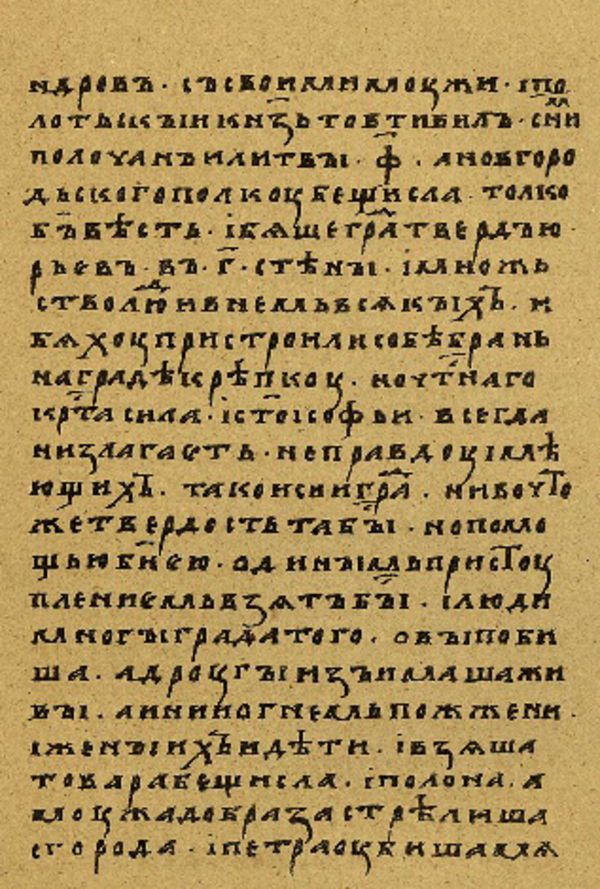 ндровъ · съсвоимимоужи · іпо
лотьскыикнѧзьтовтивилъ · снⷨи
полочанъилитвы · ф҃ · ановгоро
дьскогополкоубещисла · толко
б҃ъвѣсть · ібѧшегра҃ⷣтвердъю
рьевъ · въ · г҃ · стѣны · імножь
стволюⷣиивнемьвсѧкыхъ · и
бѧхоупристроилисобѣбрань
наградѣкрѣпкоу · ночтⷭ҇наго
крⷭ҇тасила · істо҃ісофьи · всегда
низлагаѥть · неправдоуімѣ
ющихъ · такоисиигра҃ⷣ · нивочто
жетвердостьтабы҃ⷭ · нопомо
щьюби҃ѥю · одинымьпристоу
плениѥмьвзѧтъбы҃ⷭ · ілюди
многыградатого · овыпоби
ша · адроугыиизъимашажи
вы · аининогнемьпожжени ·
іженыихъидѣти · івзѧша
товарабещисла · іполона · а
моужадобразастрѣлиша
сгорода · іпетраоубишамѧ